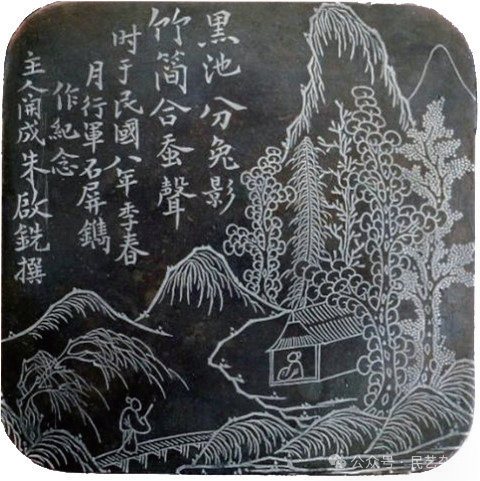 黑池分兔影
竹筒合蚕聲
时于民國八年季春
月行軍石屏鐫
作紀念
主人蘭成朱啟銑撰
公众号·民艺